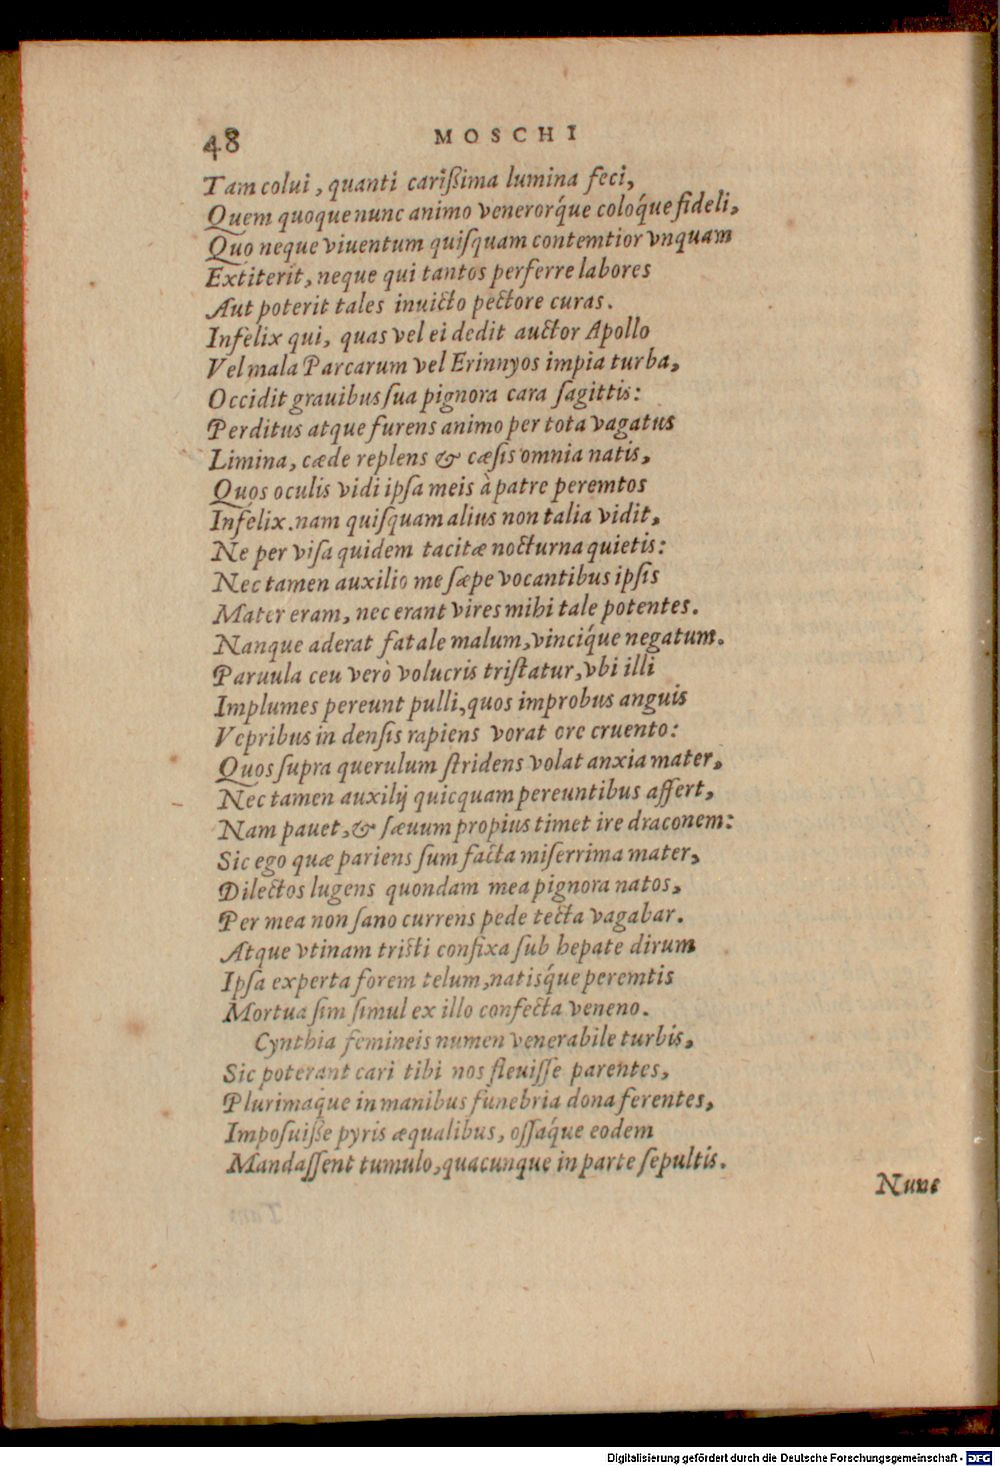 48 MOSCHI
Tam colui, quanti carißima lumina feci,
Quem quoque nunc animo venerorq́ue coloq́ue fideli,
Quo neque viuentum quiſquam contemtior vnquam
Extiterit, neque qui tantos perferre labores
Aut poterit tales inuicto pectore curas.
Infelix qui, quas vel ei dedit auctor Apollo
Vel mala Parcarum vel Erinnyos impia turba,
Occidit grauibus ſua pignora cara ſagittis:
Perditus atque furens animo per tota vagatus
Limina, cæde replens & cæſis omnia natis,
Quos oculis vidi ipſa meis à patre peremtos
Infelix. nam quiſquam alius non talia vidit,
Ne per viſa quidem tacitæ nocturna quietis:
Nec tamen auxilio me ſæpe vocantibus ipſis
Mater eram, nec erant vires mihi tale potentes.
Nanque aderat fatale malum, vinciq́ue negatum.
Paruula ceu verò volucris triſtatur, vbi illi
Implumes pereunt pulli, quos improbus anguis
Vepribus in denſis rapiens vorat ore cruento:
Quos ſupra querulum ſtridens volat anxia mater,
Nec tamen auxilij quicquam pereuntibus affert,
Nam pauet, & ſæuum propius timet ire draconem:
Sic ego quæ pariens ſum facta miſerrima mater,
Dilectos lugens quondam mea pignora natos,
Per mea non ſano currens pede tecta vagabar.
Atque vtinam triſti confixa ſub hepate dirum
Ipſa experta forem telum, natisq́ue peremtis
Mortua ſim ſimul ex illo confecta veneno.
Cynthia femineis numen venerabile turbis,
Sic poterant cari tibi nos fleuiſſe parentes,
Plurimaq́ue in manibus funebria dona ferentes,
Impoſuiße pyris æqualibus, oſſaq́ue eodem
Mandaſſent tumulo, quacunque in parte ſepultis.
Nunc
Digitalisierung gefördert durch die Deutsche Forschungsgemeinschaft - DFG